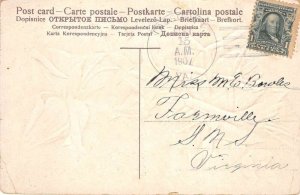 Post card – Carte postale – Postkarte – Cartolina postale
Dopisnice ОТКРЫТОЕ ПИСЬМО Levelező-Lap. – Briefkaart – Brefkort.
Correspondenzkarte – Korrespondenční lístek – Dopisnica
Karta Korespondencyjna – Дописна карта
A.M.
1907
Miss M. E. Bowles
Farmville,
S.N.S
Virginia